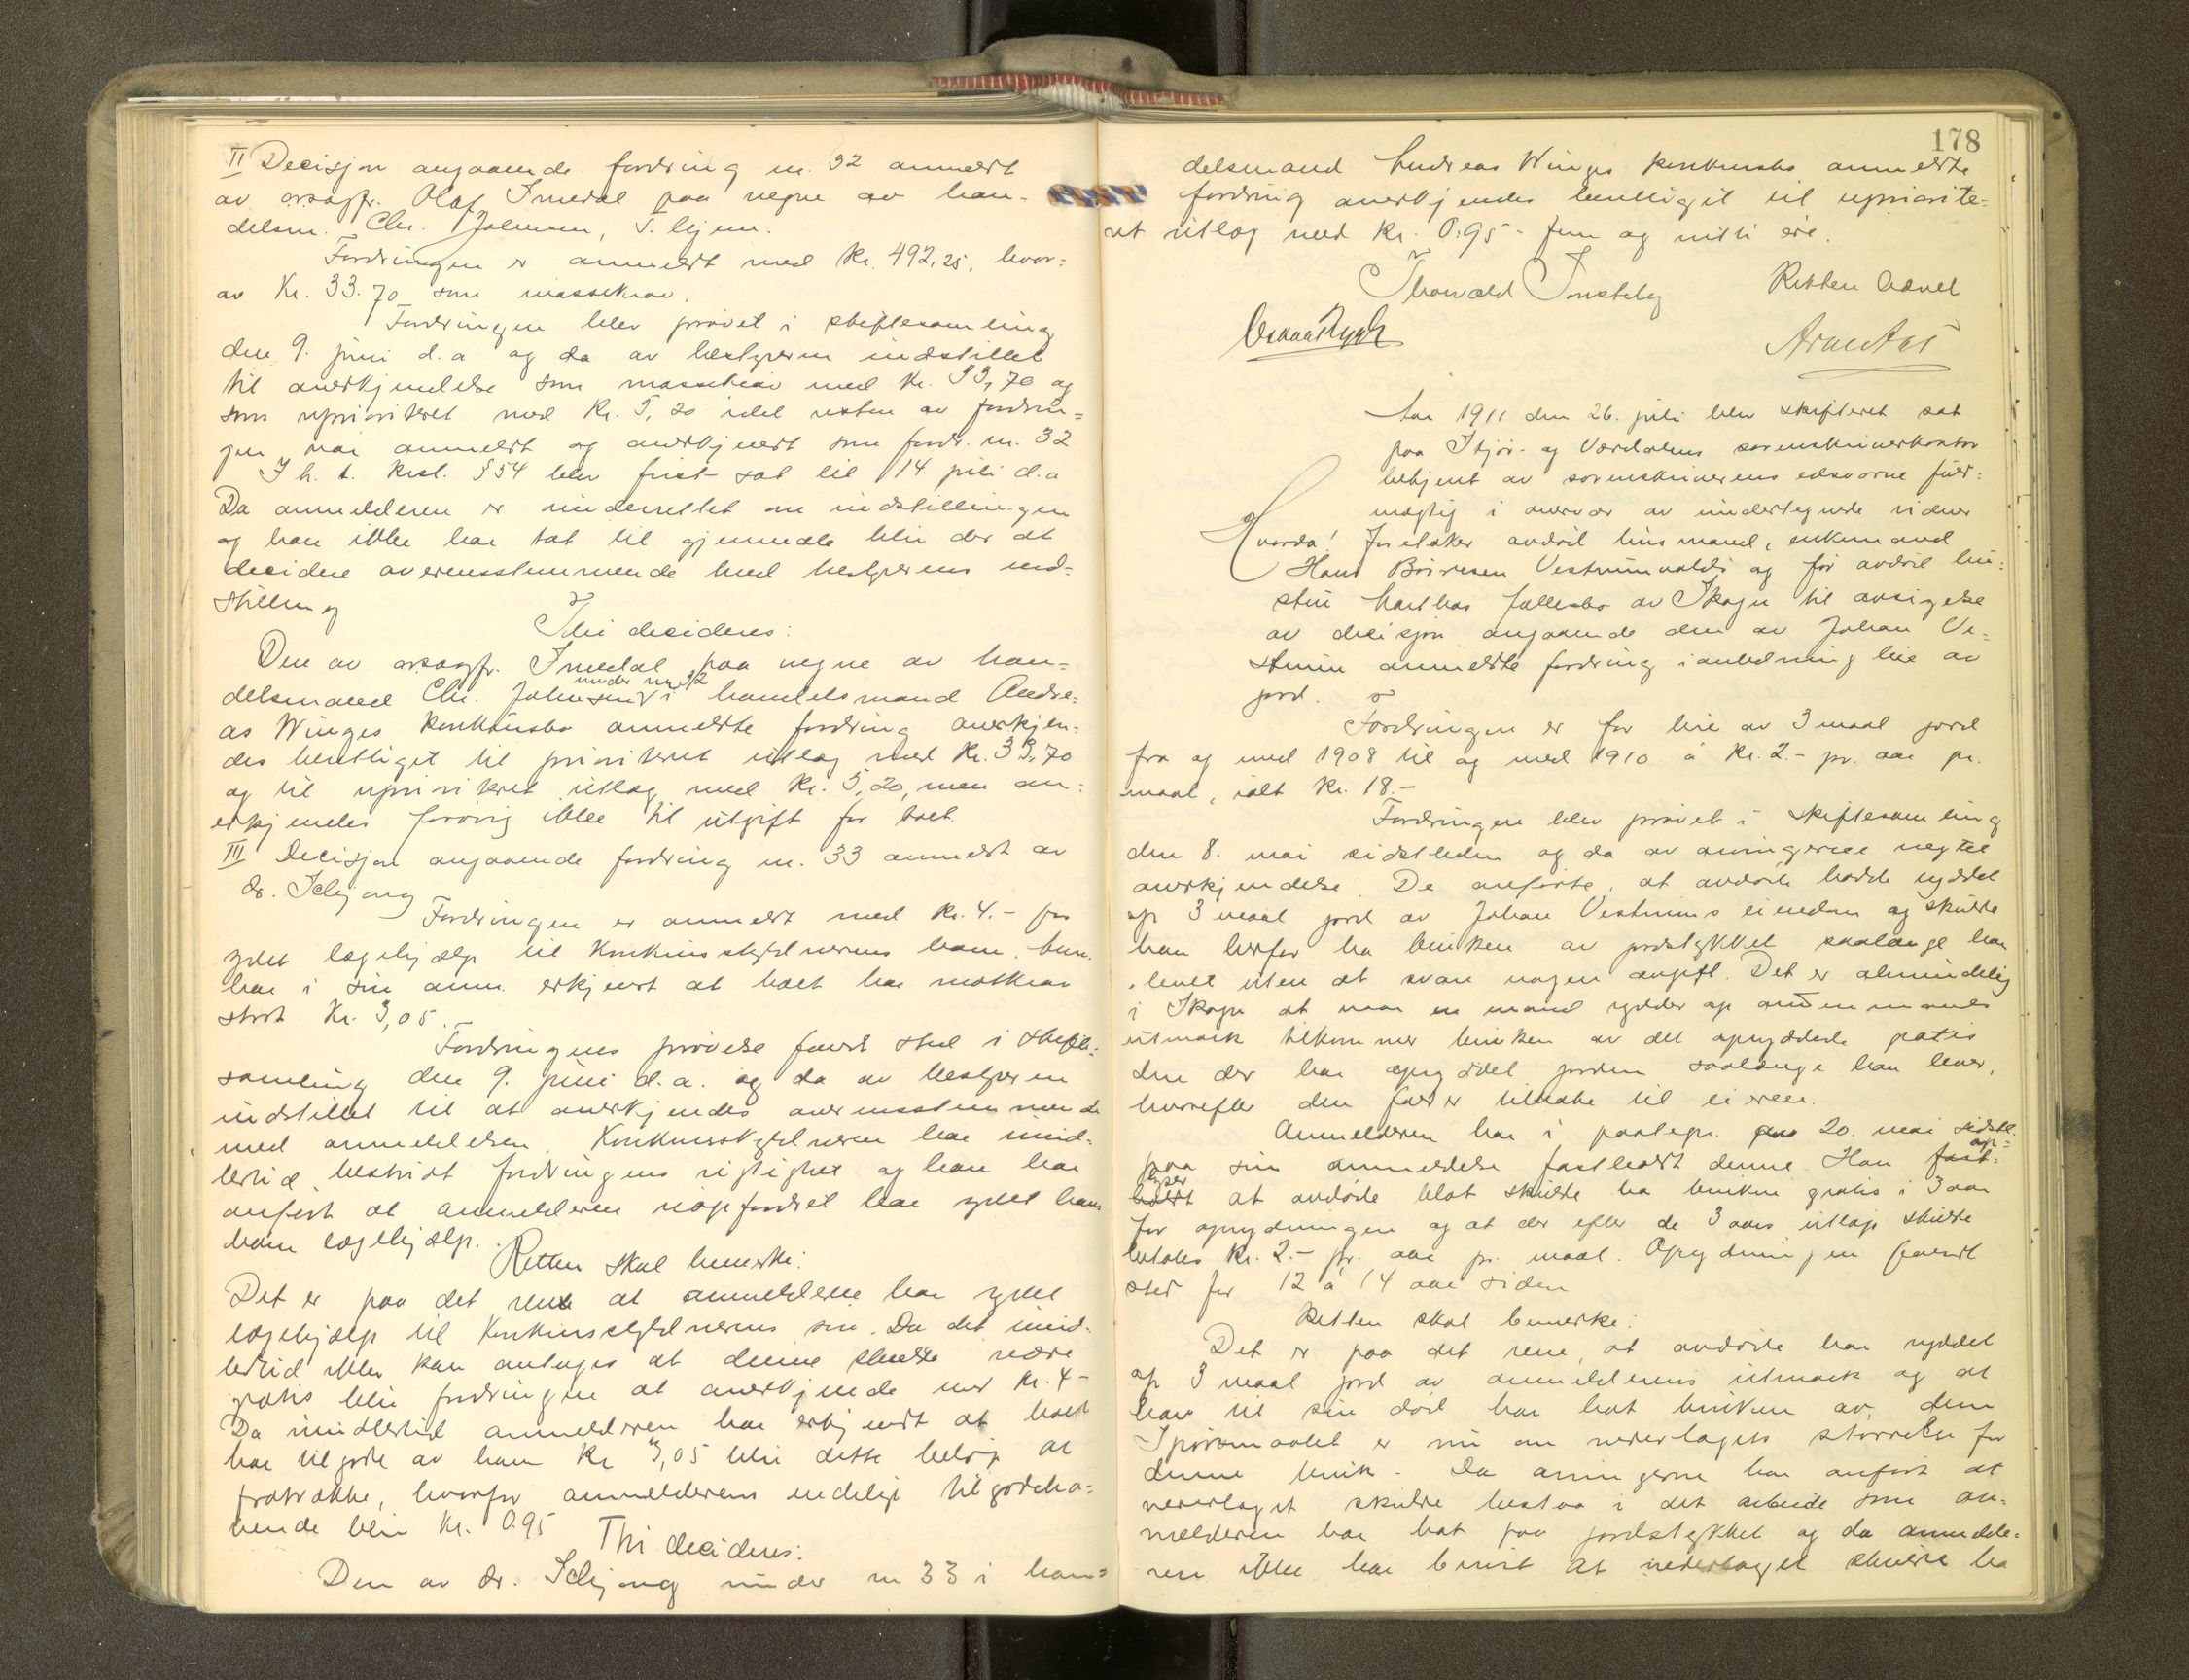 II Decisjon angaaende fordring nr. 32 anmeldt
av orsagfr. Olaf Smedal paa vegne av han-
delsm. Chr. Johnsen, T.hjem.
Fordringen er anmeldt med Kr. 492,25, hvor=
av Kr. 33.70 som massekrav.
Fordringen blev prøvet i skiftesamling
den 9. juni d.a og da av bestyreren indstillet
til anerkjendelse som massekrav med Kr. 33,70 og
som uprioritert med Kr. 5,20 idet resten av fordrin=
gen var anmeldt og anerkjendt som fordr. nr. 32
I h. t. Krsl. § 54 blev frist sat til 14. juli d.a
Da anmelderen er underrettet om indstillingen
og han ikke har tat til gjenmæle blir der at
decidere overensstemmende med bestyrerens ind=
stilling
Thi decideres:
Den av orsagfr. Smedal paa vegne av han=
delsmand Chr. Johnsen under nr. 32 i handelsmand Andre=
as Winges konkursbo anmeldte fordring anerkjen=
des berettiget til prioritert utlæg med Kr. 33,70
og til uprioritert utlæg med Kr. 5,20, men an=
erkjendes forøvrig ikke til utgift for boet.
III Decisjon angaaende fordring nr. 33 anmeldt av
dr. Schjong
Fordringen er anmeldt med Kr. 4.- for
ydet lægehjælp til konkursskyldnerens barn.
har i sin anm. erkjendt at boet har motkrav
stort Kr. 3,05.
Fordringens prøvelse fandt sted i skifte=
samling den 9. juni d.a. og da av bestyreren
indstillet til at anerkjendes overensstemmende
med anmeldelsen. Konkursskyldneren har imid=
lertid bestridt fordringens rigtighet og han har
anført at anmelderen uopfordret har ydet hans
barn lægehjælp.
Retten skal bemerke:
Det er paa det rene at anmelderen har ydet
lægehjælp til konkursskyldnerens søn. Da det imid-
lertid ikke kan antages at denne skulde være
gratis blir fordringen at anerkjende med Kr. 4-
Da imidlertid anmelderen har erkjendt at boet
har tilgode av ham Kr 3,05 blir dette beløp at
fratrække, hvorfor anmelderens endelige tilgodeha=
vende blir Kr. 0.95
Thi decideres:
Den av dr. Schjong under nr 33 i han=
178
delsmand Andreas Winges konkursbo anmeldte
fordring anerkjendes berettiget til upriorite=
rt utlæg med Kr. 0:95 - fem og nitti øre.
Retten hævet
Thorvald Tonstely
Aar 1911 den 26. juli blev skifteret sat
paa Stjør- og Værdalens sorenskriverkontor
betjent av sorenskriverens edsvorne fuld=
mægtig i overvær av undertegnede vidner
Hvorda! Foretokes avdød husmand, enkemand
Hans Børresen Vestrumvalds og før avdød hu=
stru Marthas fællesbo av Skogn til avsigelse
av decisjon angaaende den av Johan Ve=
strum anmeldte fordring i anledning leie av
jord.
Fordringen er for leie av 3 maal jord
fra og med 1908 til og med 1910 à Kr. 2.- pr. aar pr.
maal, ialt Kr. 18.-
Fordringen blev prøvet i skiftesamling
den 8. mai sidstleden og da av arvingerne negtet
anerkjendelse. De anførte, at avdøde hadde ryddet
op 3 maal jord av Johan Vestrums eiendom og skulde
han herfor ha bruken av jordstykket saalænge han
levet uten at svare nogen avgift. Det er almindelig
i Skogn at naar en mand rydder op anden mands
utmark tilkommer bruken av det opryddede gratis
den der har opryddet jorden saalænge han lever,
hvorefter den falder tilbake til eieren.
Anmelderen har i paategn. 20. mai sidstl.
paa sin anmeldelse fastholdt denne. Han op=
lyser at avdøde blot skulde ha bruken gratis i 3 aar
for oprydningen og at der efter de 3 aars utløp skulde
betales Kr. 2.- pr. aar pr. maal. Oprydningen fandt
sted for 12 à 14 aar siden
Retten skal bemerke:
Det er paa det rene, at avdøde har ryddet
op 3 maal jord av anmelderens utmark og at
han til sin død har hat bruken av den
Spørsmaalet er nu om vederlagets størrelse for
denne bruk. Da arvingerne har anført at
vederlaget skulde bestaa i det arbeide som an=
melderen har hat paa jordstykket og da anmelde=
ren ikke har bevist at vederlaget skulde ha